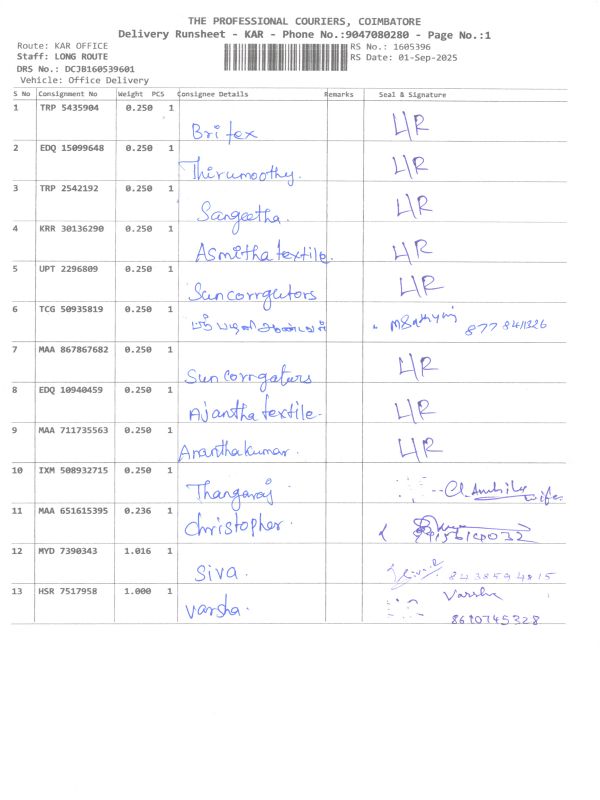 THE PROFESSIONAL COURIERS, COIMBATORE
Delivery Runsheet - KAR - Phone No.:9047080280 - Page No.:1
Route: KAR OFFICE
RS No.: 1605396
Staff: LONG ROUTE
RS Date: 01-Sep-2025
DRS No.: DCJB160539601
Vehicle: Office Delivery
S No Consignment No Weight PCS Consignee Details Remarks Seal & Signature
1 TRP 5435904 0.250 1 Britex L/R
2 EDQ 15099648 0.250 1 Thirumoothy. L/R
3 TRP 2542192 0.250 1 Sangeetha. L/R
4 KRR 30136290 0.250 1 Asmitha textile. L/R
5 UPT 2296809 0.250 1 Suncorrgutors L/R
6 TCG 50935819 0.250 1
7 MAA 867867682 0.250 1 Sun corrgaturs L/R
8 EDQ 10940459 0.250 1 Ajantha textile- L/R
9 MAA 711735563 0.250 1 Ananthakumar. L/R
10 IXM 508932715 0.250 1 Thangaraj wife
11 MAA 651615395 0.236 1 Christopher.
12 MYD 7390343 1.016 1 Siva.
13 HSR 7517958 1.000 1 varsha. Varsha
8610745328